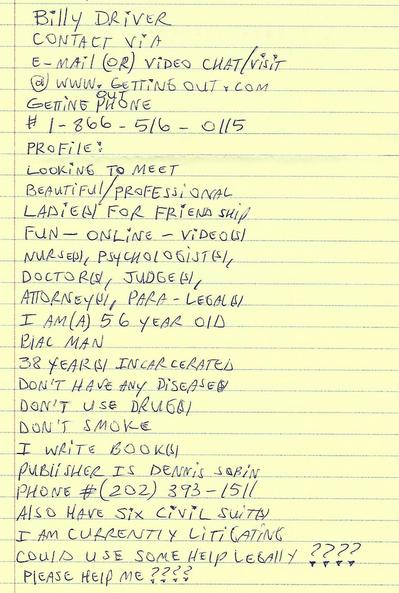 Billy DRiVER
CONTACT ViA
E-MAil (OR) ViDEO CHAT/ViSiT
@ WWW. GETTiNG OUT. COM
GETTiNG OUT PHONE
# 1-866-516-0115
PROFilE:
LOOKiNG TO MEET
BEAUTiFUl/PROFESSiONAL
LADiE(S) FOR FRiENDShip
FUN - ONLiNE - ViDEO(S)
NURSE(S), PSYCHOLOGiST(S),
DOCTOR(S), JUDGE(S),
ATTORNEY(S), PARA-LEGAL(S)
I AM(A) 56 YEAR OlD
BlAC MAN
38 YEAR(S) INCARCERATED
DON'T HAVE ANY DiSEASE(S)
DON'T USE DRUG(S)
DON'T SMOKE
I WRiTE BOOK(S)
PUBLiSHER IS DENNiS SOBiN
PHONE #(202) 393-1511
AlSO HAVE SiX CiViL SUiT(S)
I AM CURRENTLY LiTiGATiNG
COULD USE SOME HELP LEGALLY ????
PLEASE HELP ME ????